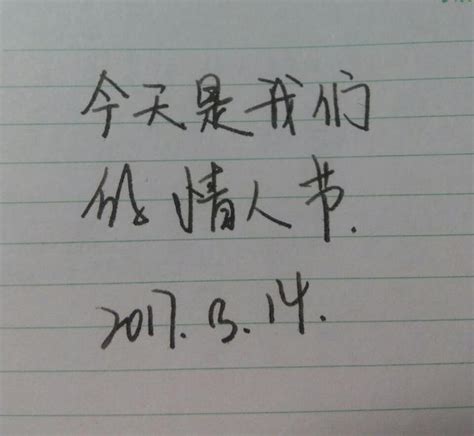 今天是我们
的情人节.
2017.3.14.